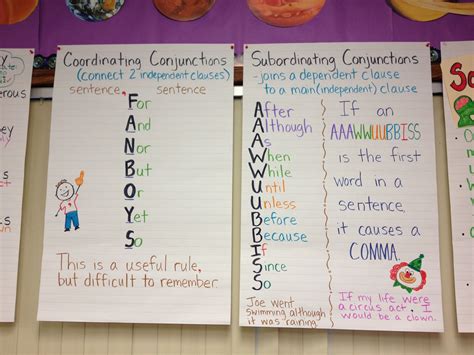 Coordinating Conjunctions
(connect 2 independent clauses)
sentence, sentence
For
And
Nor
But
Or
Yet
So
This is a useful rule,
but difficult to remember.
Subordinating Conjunctions
-joins a dependent clause
to a main (independent) clause
After
Although
As
When
While
Until
Unless
Before
Because
If
Since
So
Joe went
swimming although
it was "raining"
If an
AAAWWUUBBISS
is the first
word in a
sentence,
it causes a
COMMA.
If my life were
a circus act, I
would be a clown.
erous